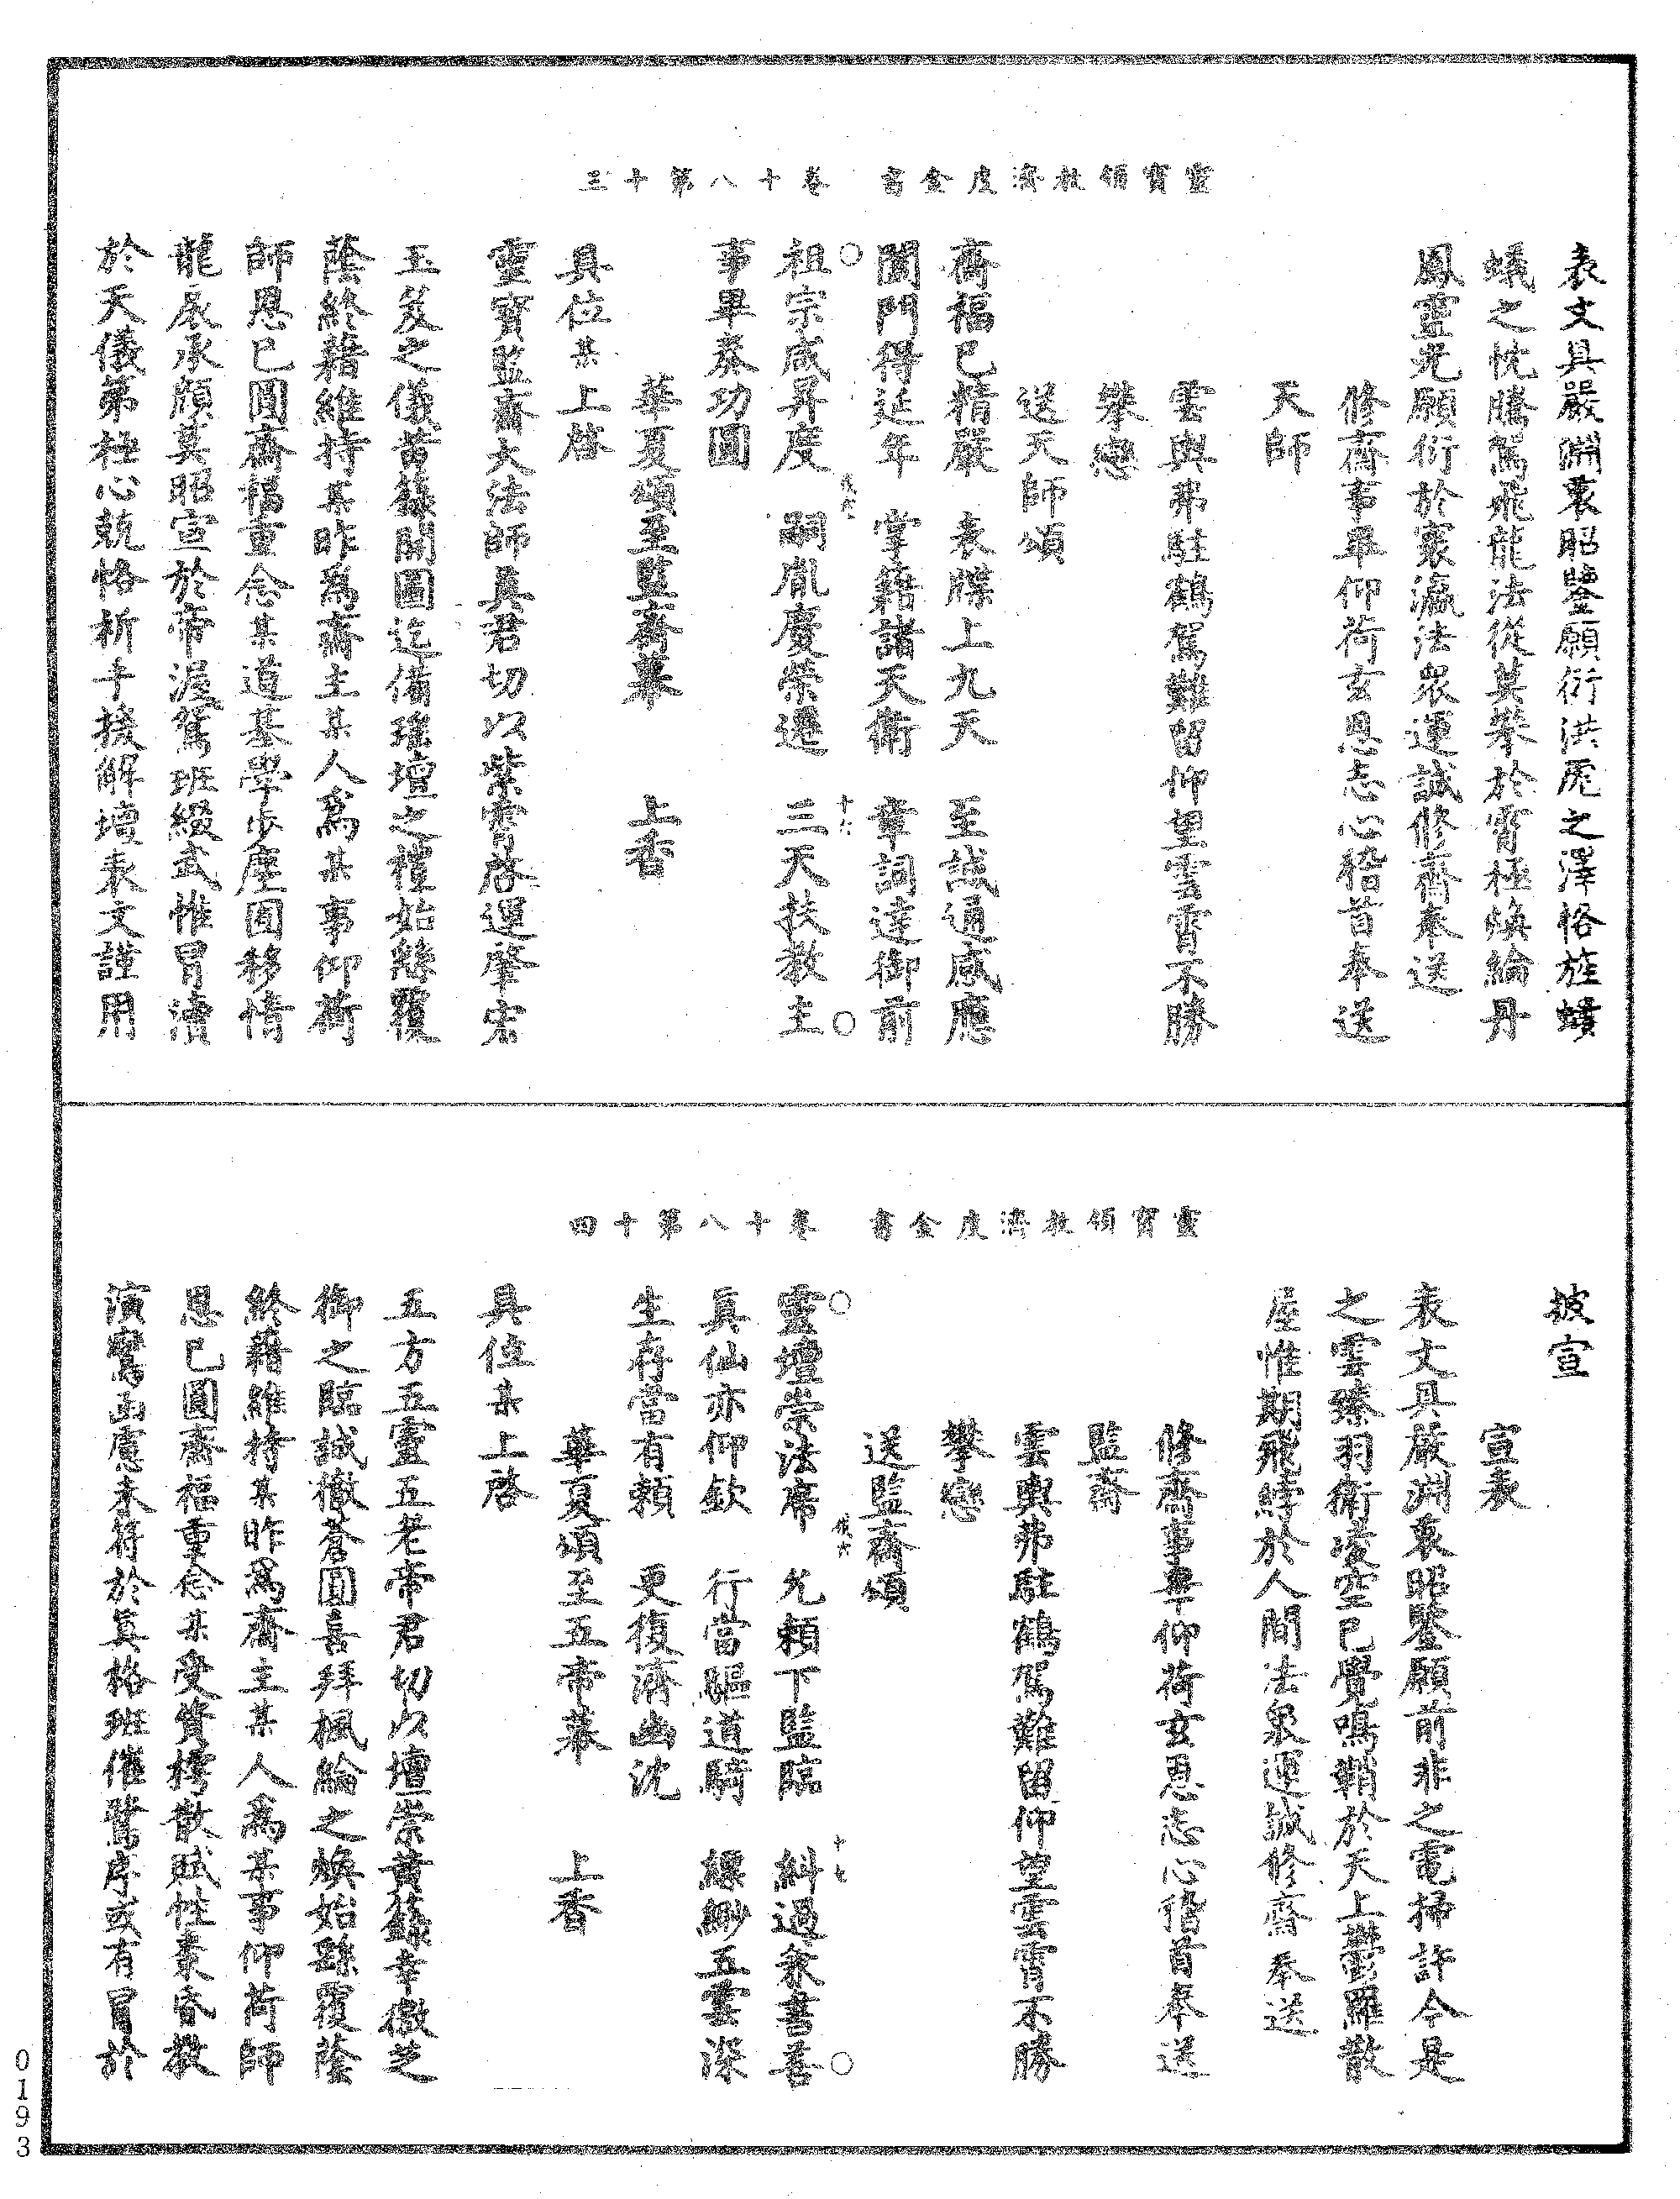 靈寶領教濟度金書　卷十八第十三
表文具嚴淵衷昭鑒願衍洪厖之澤恪旌螻
蟻之忱騰駕飛龍法從莫攀於霄極煥綸丹
鳳靈光願衍於寰瀛法眾運誠修齋奉送
修齋事畢仰荷玄恩志心稽首奉送
天師
雲輿弗駐鶴駕難留仰望雲霄不勝
攀戀
送天師頌
齋福已精嚴　表牒上九天　至誠通感應
闔門得延年　掌籍諸天衛　章詞達御前
祖宗咸昇度　嗣胤慶榮遷　三天扶教主
事畢奏功圓
華夏頌至監齋幕　上香
具位某上啓
靈寶監齋大法師真君切以紫霄啓運肇宏
玉笈之儀黃籙開圖迄備瑤壇之禮始繇覆
蔭終藉維持某昨為齋主某人為某事仰荷
師恩已圓齋福重念某道基學步塵囿移情
龍扆承顏莫昭宣於帝渥鴛班綴武惟冒瀆
於天儀第極心兢恪析手援解壇表文謹用
十六
靈寶領教濟度金書　卷十八第十四
披宣
宣表
表文具嚴淵衷昭鑒願前非之電掃許今是
之雲臻羽衛凌空已覺鳴鞘於天上鬱羅散
屋惟期飛綍於人間法眾運誠修齋奉送
修齋事畢仰荷玄恩志心稽首奉送
監齋
雲輿弗駐鶴駕難留仰望雲霄不勝
攀戀
送監齋頌
靈壇崇法席　允賴下監臨　糾過兼書善
真仙亦仰欽　行當驅道騎　縹緲五雲深
生存當有賴　更復濟幽沈
華夏頌至五帝幕　上香
具位某上啓
五方五靈五老帝君切以壇崇黃籙幸徼芝
御之臨誠徹蒼圓喜拜楓綸之煥始繇覆蔭
終藉維持某昨為齋主某人為某事仰荷師
恩已圓齋福重念某受質樗散賦性柔昏教
演鸞函慮未符於真格班催鷺序或有冒於
十七
0193